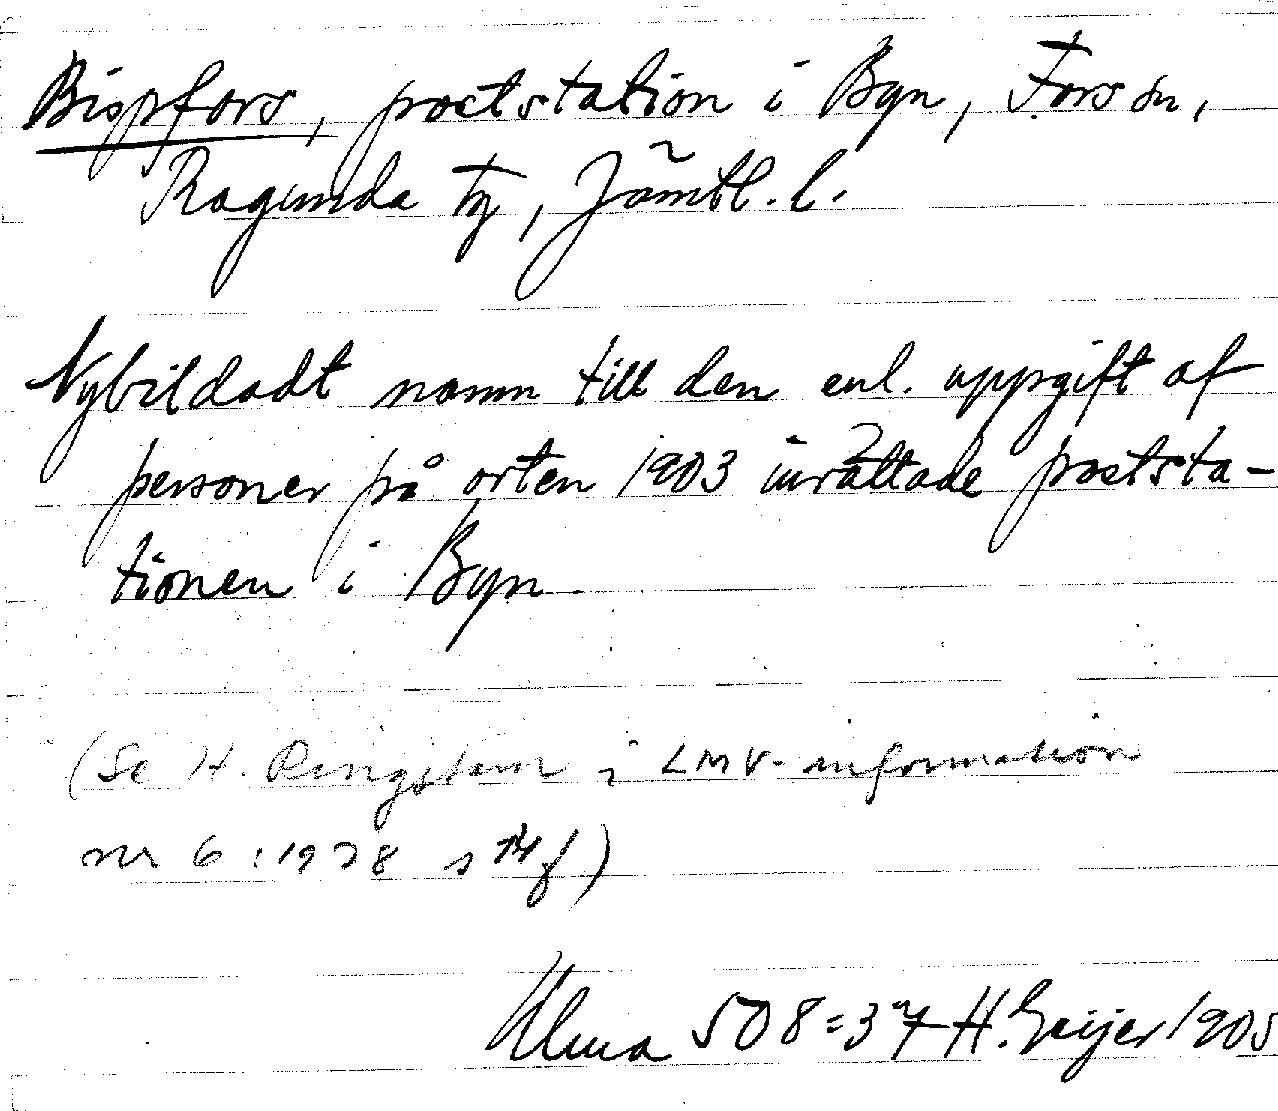 Bispfors, poststation i Byn, Fors sn,
Ragunda tg, Jämtl. l.
Nybildadt namn till den enl. uppgift af
personer på orten 1903 inrättade poststa-
tionen i Byn
(Se H. Ringstam i LMV-information
nr 6:1978 s f)
Ulma 508:37 H. Geijer 1905